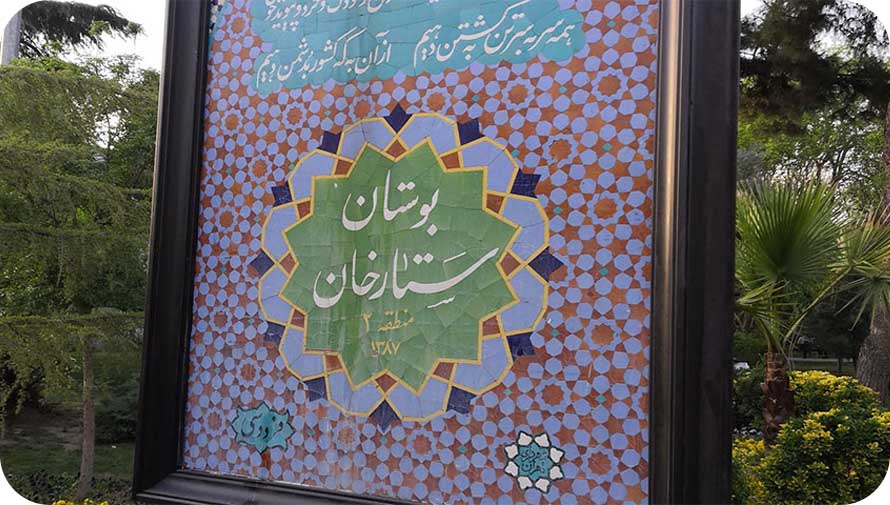 همه سر به سر تن به کشتن دهیم
از آن به که کشور به دشمن دهیم
بوستان
ستارخان
منطقه ۲
۱۳۸۷
فردوسی